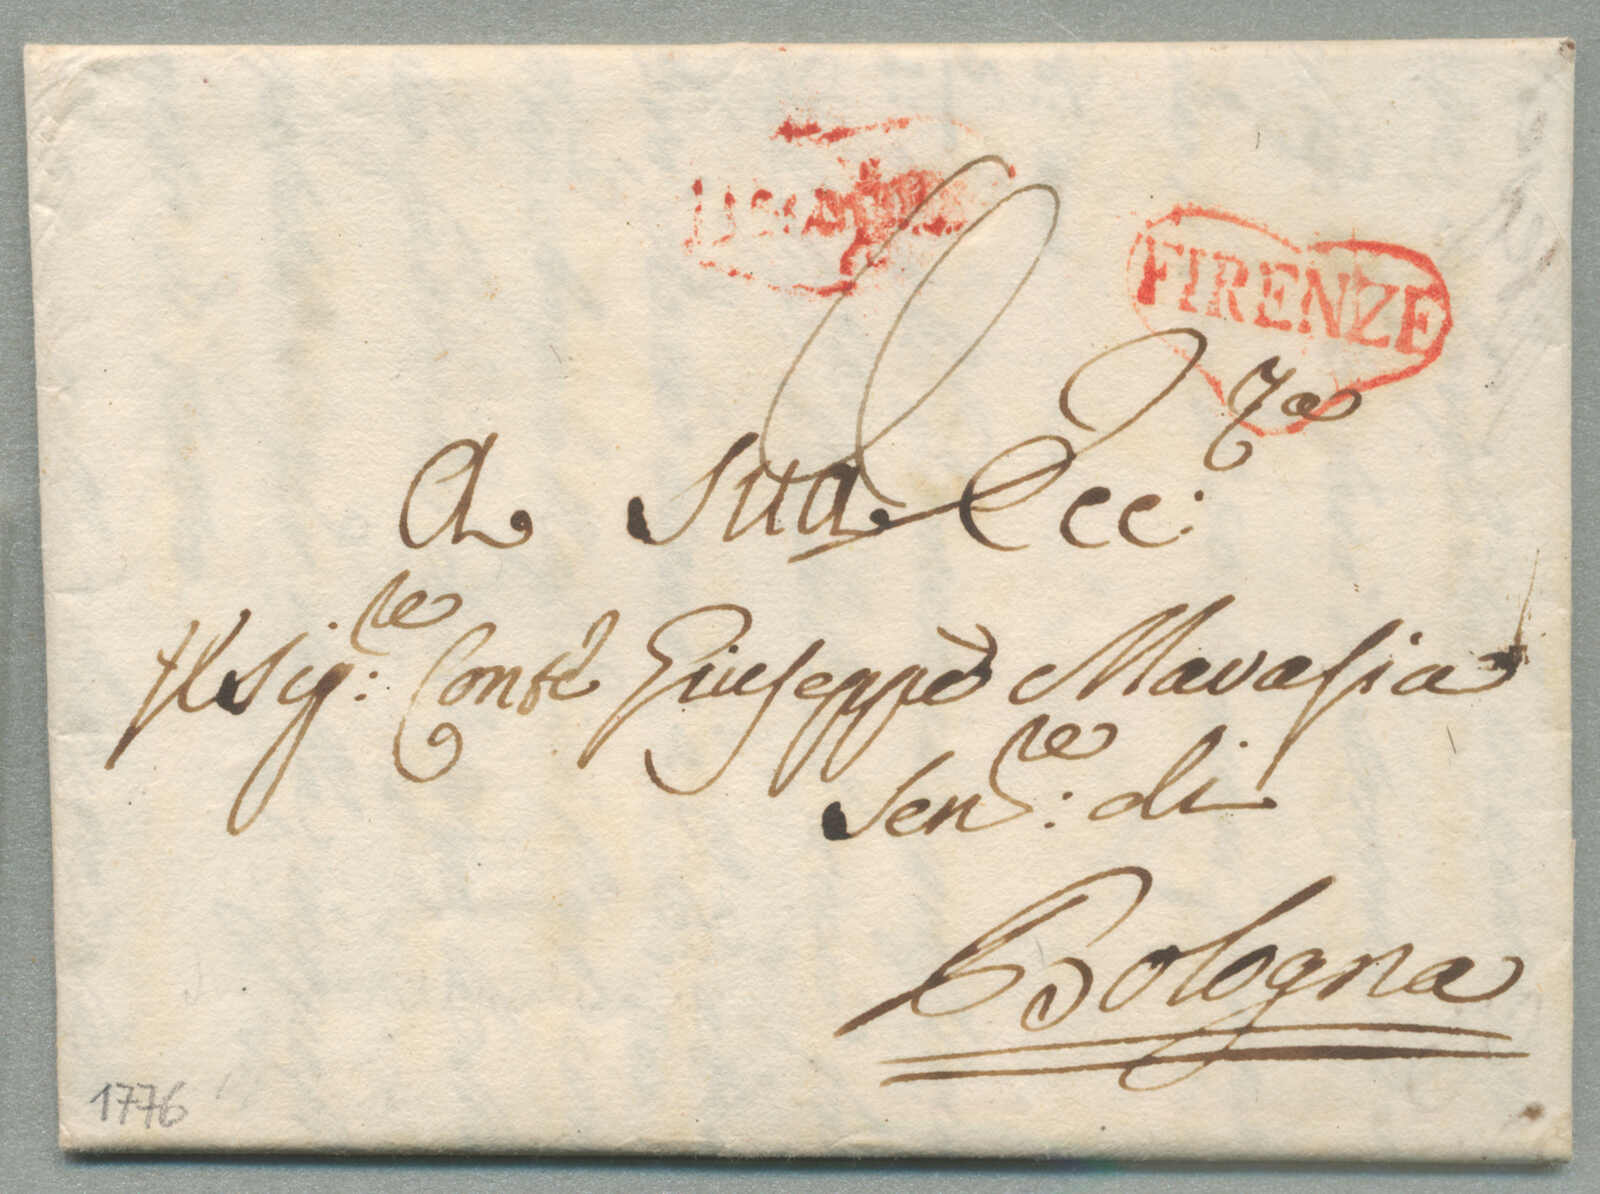 FIRENZE
A Sua Ecc:za
Il Sig:re Conte Giuseppe Malvasia
Sen:re di
Bologna
1776